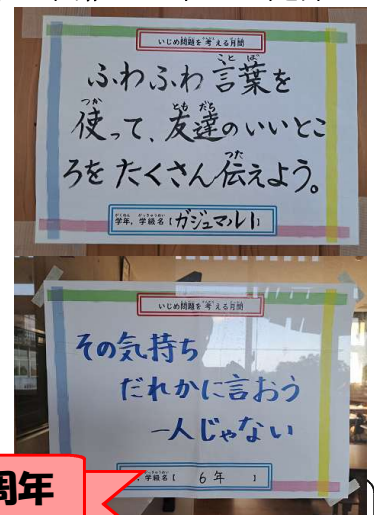 いじめ問題を考える月間
ふわふわ言葉を
使って、友達のいいとこ
ろをたくさん伝えよう。
学年，学級名【ガジュマル1】
いじめ問題を考える月間
その気持ち
だれかに言おう
一人じゃない
学級名【 6年 】
周年